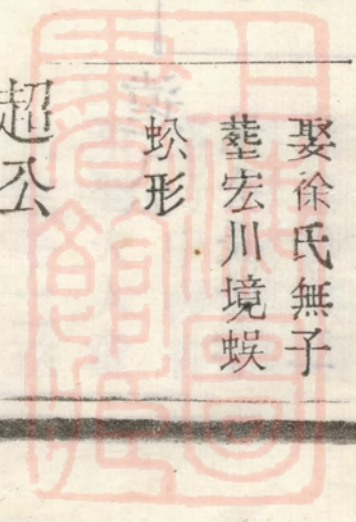 娶徐氏無子
塟宏川境蜈
蚣形
超公